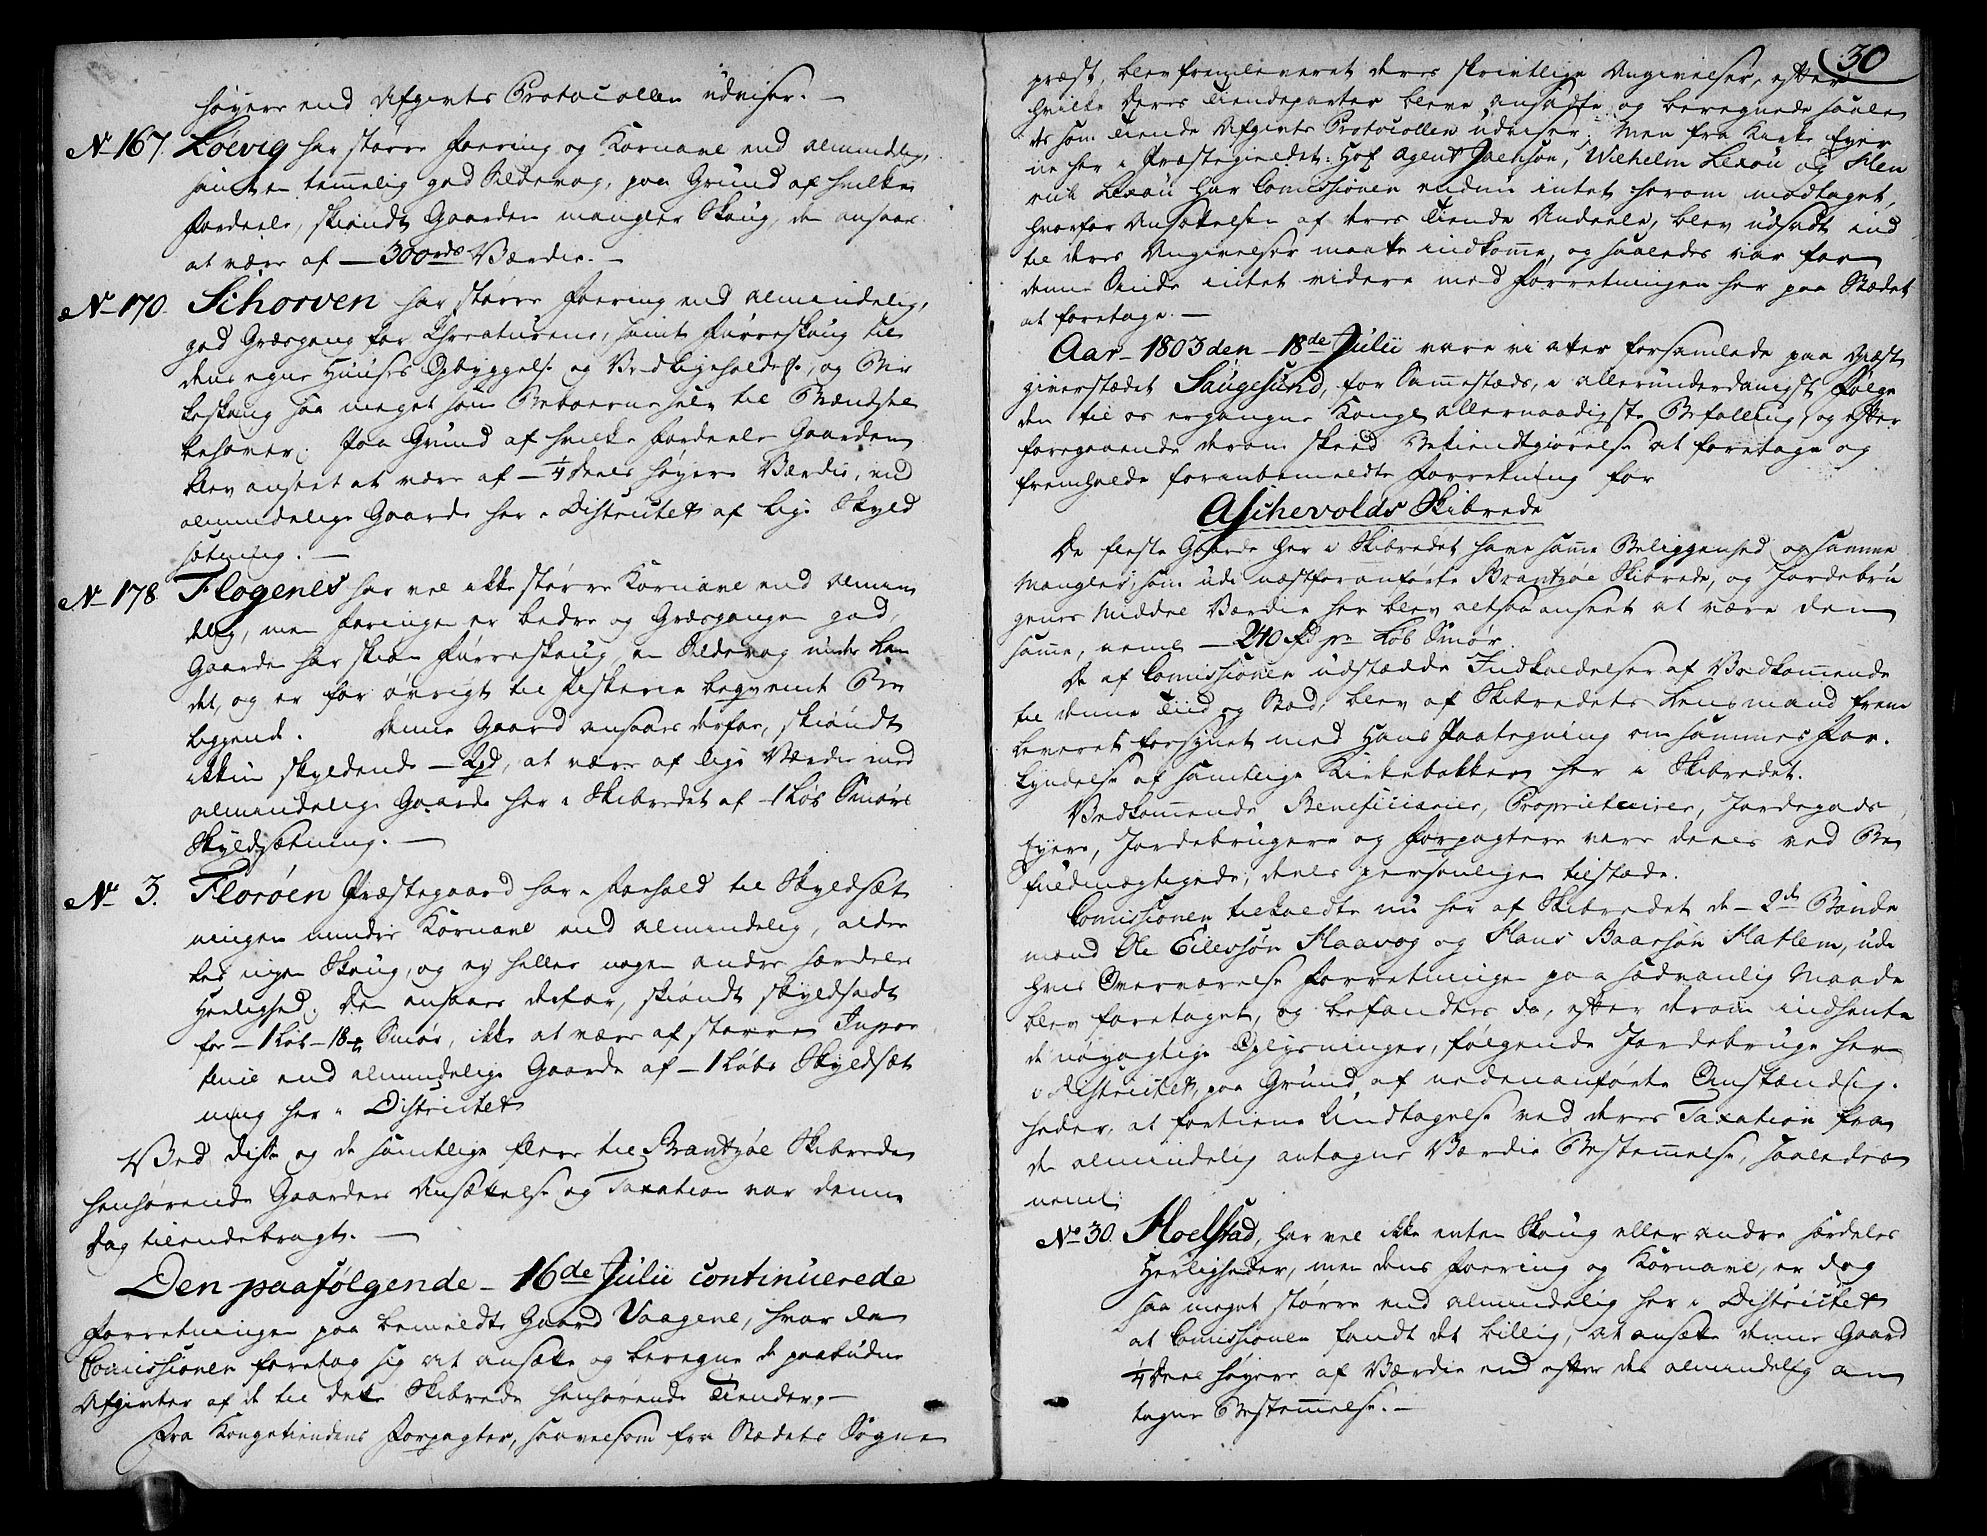 høyere end Afgivts Protocollen udviser. —
No 167. Løevig har større foering og Kornavl end almindelig,
samt en temmelig god Sildevog, paa Grund af hvilke
fordeele, skiøndt Gaarden mangler Skoug, den ansaaes
at være af — 300 rdlr Værdie. —
No 170. Schorven har større foering end almindelig,
god Græsgang for Chreaturene, samt furreskoug til
dens egne Huuses Opbyggelse og Vedligeholdelse, og Bir
keskoug saa meget som Beboerne selv til Brændsel
behøver. Paa Grund af hvilke fordeele Gaarden
blev anseet at være af — 1/4 deels høyere Værdie, end
almindelige Gaarde her i Districtet af lige Skyld
sætning. —
No 178 Flogenes har vel ikke større Kornavl end almin
delig, men foeringen er bedre og Græsgangen god,
Gaarden har skiøn furreskoug, en Sildevog under Lan
det, og er for øvrigt til fiskerie beqvemt Be
liggende. Denne Gaard ansaaes derfor, skiøndt
ikkun skyldende — 2 pd, at være af lige Værdie med
almindelige Gaarde her i Skibredet af — 1 Løb Smørs
Skyldsætning. —
No 3. Florøen Præstegaard har i forhold til Skyldsæt
ningen mindre Kornavl end almindelig, alde
les ingen Skoug, og ey heller nogen andre særdeles
Herlighed. Den ansaaes derfor, skiøndt skyldsadt
for — 1 Løb — 18 Smør, ikke at være af større Impor
tence end almindelige Gaarde af — 1 Løbs Skyldsæt
ning her i Districtet
Ved disse og de samtlige flere til Brantzøe Skibrede
henhørende Gaarders Ansættelse og Taxation var denne
Dag tilendebragt. —
Den paafølgende — 16de Julii continuerede
forretningen paa bemeldte Gaard Vaagene, hvor da
Comissionen foretog sig at ansætte og beregne de paabudne
Afgivter af de til dette Skibrede henhørende Tiender. —
Fra Kongetiendens forpagter, saavelsom fra Stædets Sogne
30
præst, blev fremleveret deres skrivtlige Angivelser, efter
hvilke deres Tiendeparter bleve ansadte og beregnede saale
des som Tiende Afgivts Protocollen udviser; Men fra Kirke Eyer
ne her i Præstegieldet: Hof Agent Jaenson, Wilhelm Lexau og Hen
rik Lexau har Comissionen endnu intet herom modtaget,
hvorfor Ansættelsen af deres Tiende Andeele, blev udsadt ind
til deres Angivelser maatte indkome, og saaledes var for
denne Sinde intet videre med forretningen her paa Stædet
at foretage. —
Aar — 1803 den — 18de Julii vare vi atter forsamlede paa Giæst
giverstædet Saugesund, for Sammestæds, i allerunderdanigst følge
den til os ergangne Kongl. allernaadigste Befalling, og efter
foregaaende derom skeed Bekiendtgiørelse at foretage og
fremholde foranbemeldte forretning for
Aschevolds Skibrede
De fleste Gaarde her i Skibredet have samme Beliggenhed og samme
Mangler, som udi næstforanførte Brantzøe Skibrede, og Jordebru
genes Middel Værdie her blev altsaa anseet at være den
samme, neml. — 240 rd pr Løb Smør.
De af Comissionen udstædde Indkaldelser af Vedkomende
til denne Tiid og Stæd, blev af Skibredets Lensmand frem
leveret forsynet med Hans Paategning om sammes for-
kyndelse af samtlige Kirkebakker her i Skibredet.
Vedkommende Beneficiarier, Proprietairer, Jordegods
Eyere, Jordebrugere og forpagtere vare deels ved Be
fuldmægtigede, deels personligen tilstæde.
Comissionen tilkaldte nu her af Skibredet de — 2de Bønde
mænd Ole Eilevsøn Haavog og Hans Baarsøn Hatlem, udi
hvis Overværelse forretningen paa sædvanlig Maade
blev foretaget, og befandtes da, efter derom indhente
de nøyagtige Oplysninger, følgende Jordebruge her
i Districtet, paa Grund af nedenanførte Omstændig-
heder, at fortiene Undtagelse ved deres Taxation fra
den almindelig antagne Værdie Bestemmelse, saaledes
neml:
No 30. Hoelstad, har vel ikke enten Skoug eller andre særdeles
Herligheder, men dens foering og Kornavl, er dog
saa meget større end almindelig her i Districtet
at Comissionen fandt det billig, at ansætte denne Gaard
1/4 Deel høyere af Værdie end efter den almindelig an
tagne Bestemmelse. —